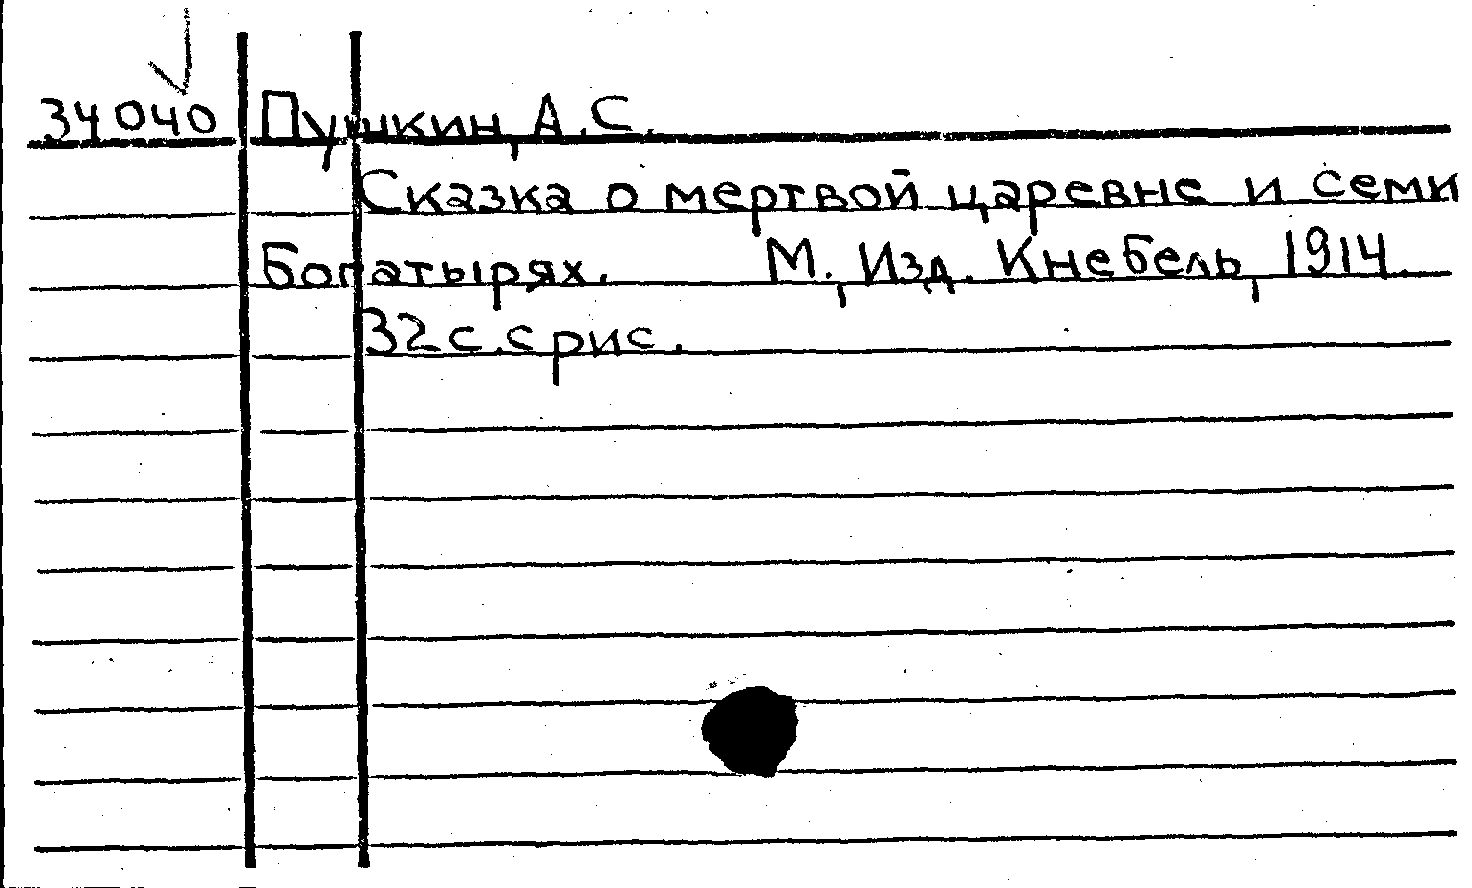 34040 Пушкин, А.С.
Сказка о мертвой царевне и семи
Богатырях. М., Изд. Кнебель, 1914.
32с. с рис.